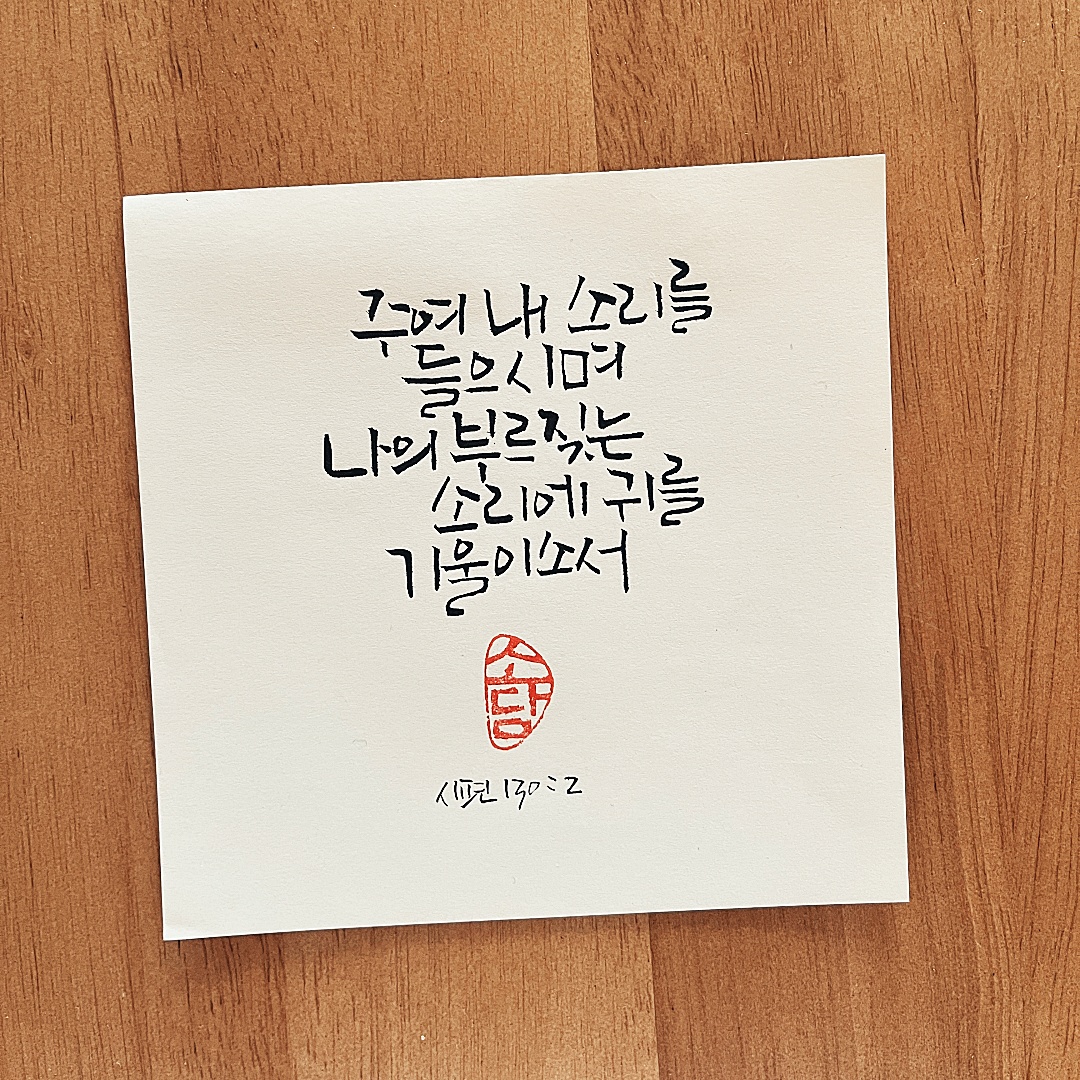 주여 내 소리를
들으시며
나의 부르짖는
소리에 귀를
기울이소서
소담
시편 130:2